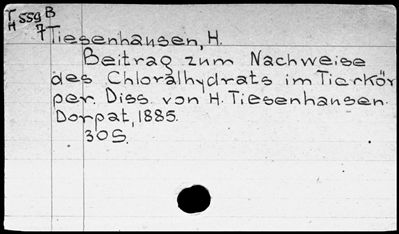 T 559 B
H 7
Tiesenhausen, H.
Beitrag zum Nachweise
des Chloralhydrats im Tierkör
per. Diss. von H. Tiesenhausen.
Dorpat, 1885.
30S.